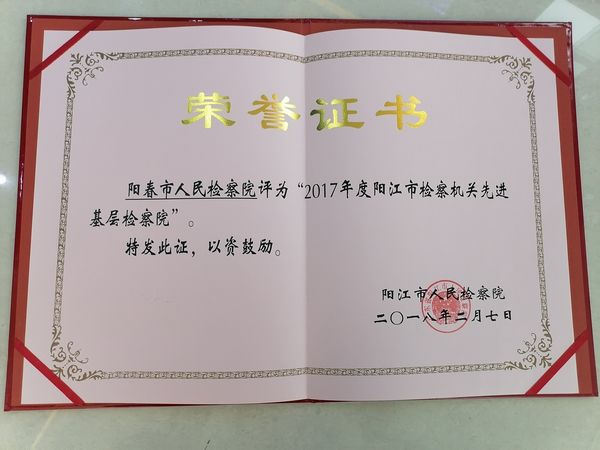 荣誉证书
阳春市人民检察院评为“2017年度阳江市检察机关先进
基层检察院”。
特发此证，以资鼓励。
阳江市人民检察院
二〇一八年二月七日